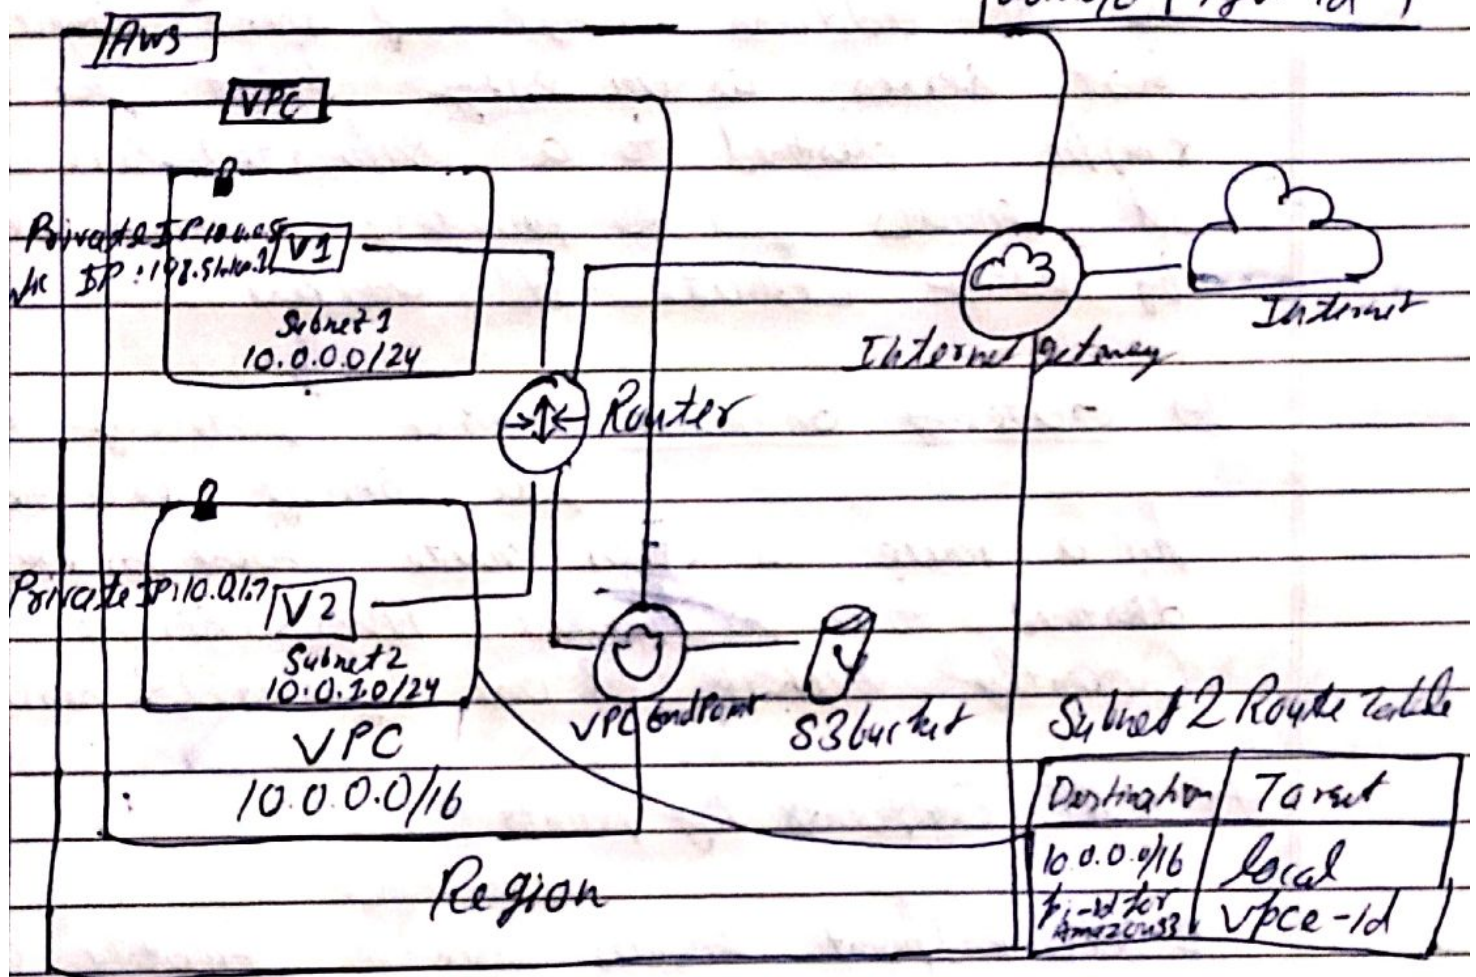 Aws
VPC
Private IP 10.0.0.5
IP : 198.51.100.1
V1
Subnet 1
10.0.0.0/24
Router
Internet getaway
Internet
Private IP: 10.0.1.7
V2
Subnet 2
10.0.1.0/24
VPC EndPoint
S3 bucket
VPC
10.0.0.0/16
Region
Subnet 2 Route Table
Destination Target
10.0.0.0/16 local
-id for Amazon S3 vpce-id